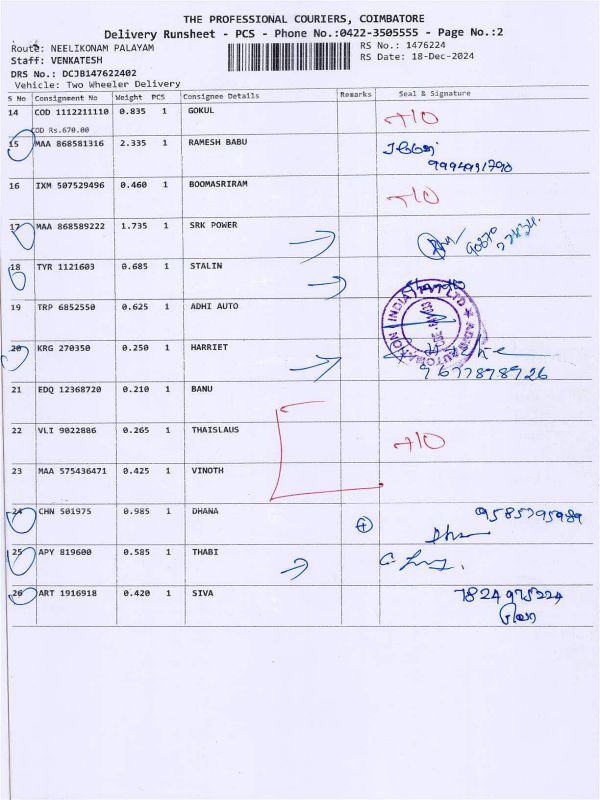 THE PROFESSIONAL COURIERS, COIMBATORE
Delivery Runsheet - PCS - Phone No.:0422-3505555 - Page No.:2
Route: NEELIKONAM PALAYAM
RS No.: 1476224
Staff: VENKATESH
RS Date: 18-Dec-2024
DRS No.: DCJB147622402
Vehicle: Two Wheeler Delivery
S No Consignment No Weight PCS Consignee Details Remarks Seal & Signature
14 COD 1112211110 0.835 1 GOKUL
COD Rs.670.00
15 MAA 868581316 2.335 1 RAMESH BABU
16 IXM 507529496 0.460 1 BOOMASRIRAM
17 MAA 868589222 1.735 1 SRK POWER
18 TYR 1121603 0.685 1 STALIN
19 TRP 6852550 0.625 1 ADHI AUTO
20 KRG 270350 0.250 1 HARRIET
9677878926
21 EDQ 12368720 0.210 1 BANU
22 VLI 9022886 0.265 1 THAISLAUS
23 MAA 575436471 0.425 1 VINOTH
24 CHN 501975 0.985 1 DHANA 9585795989
25 APY 819600 0.585 1 THABI
26 ART 1916918 0.420 1 SIVA 7824975224